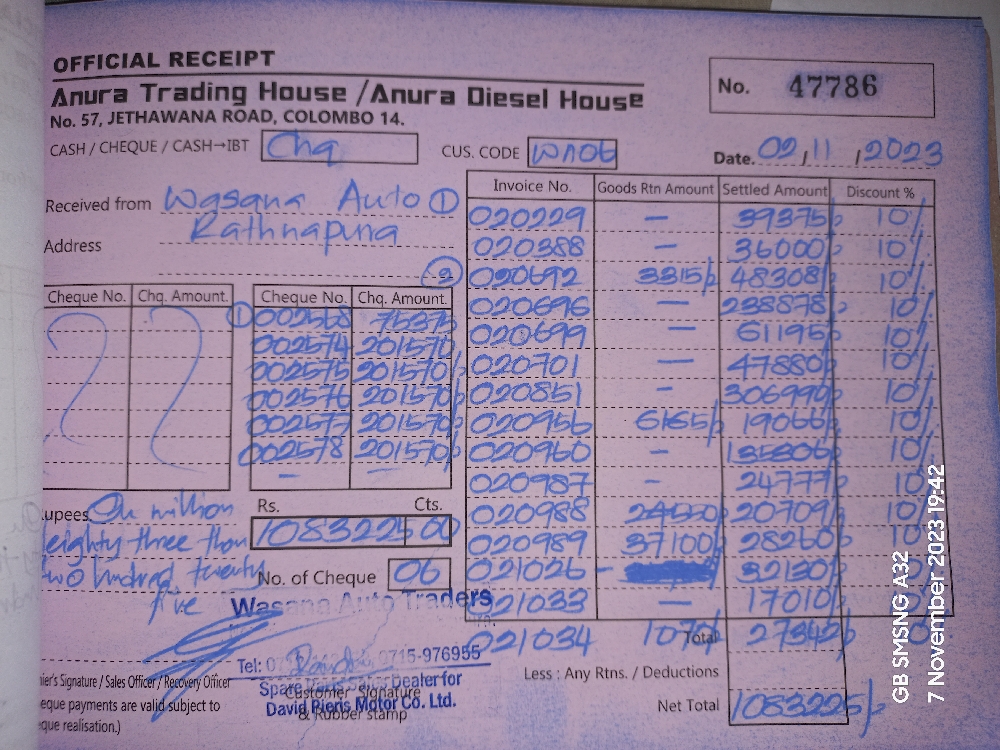 OFFICIAL RECEIPT
Anura Trading House / Anura Diesel House
No. 57, JETHAWANA ROAD, COLOMBO 14.
No. 47786
CASH / CHEQUE / CASH→IBT Chq
CUS. CODE WA06
Date. 02/11/2023
Received from Wasana Auto ①
Address Rathnapura
②
Invoice No. Goods Rtn Amount Settled Amount Discount %
020229 — 39375/- 10%
020388 — 36000/- 10%
020692 3315/- 48308/- 10%
020696 — 238878/- 10%
020699 — 61195/- 10%
020701 — 47880/- 10%
020851 — 306990/- 10%
020956 6165/- 19066/- 10%
020960 — 135306/- 10%
020987 — 24777/- 10%
020988 20709/- 10%
020989 37100/- 28260/- 10%
021026 - 32130/-
021033 — 17010/-
021034 1070/- Total 27342/-
Less : Any Rtns. / Deductions
Net Total 1083225/-
Cheque No. Chq. Amount.
Cheque No. Chq. Amount.
① 002568 75375/-
002574 201570/-
002575 201570/-
002576 201570/-
002577 201570/-
002578 201570/-
— —
Rs. Cts.
1083225 00
upees On million
eighty three thou
two hundred twenty
five
No. of Cheque 06
Wasana Auto Traders
Tel: 0715-976955
Spare Dealer for
David Pieris Motor Co. Ltd.
Customer Signature
& Rubber stamp
ier's Signature / Sales Officer / Recovery Officer
eque payments are valid subject to
que realisation.)
GB SMSNG A32
7 November 2023 19:42